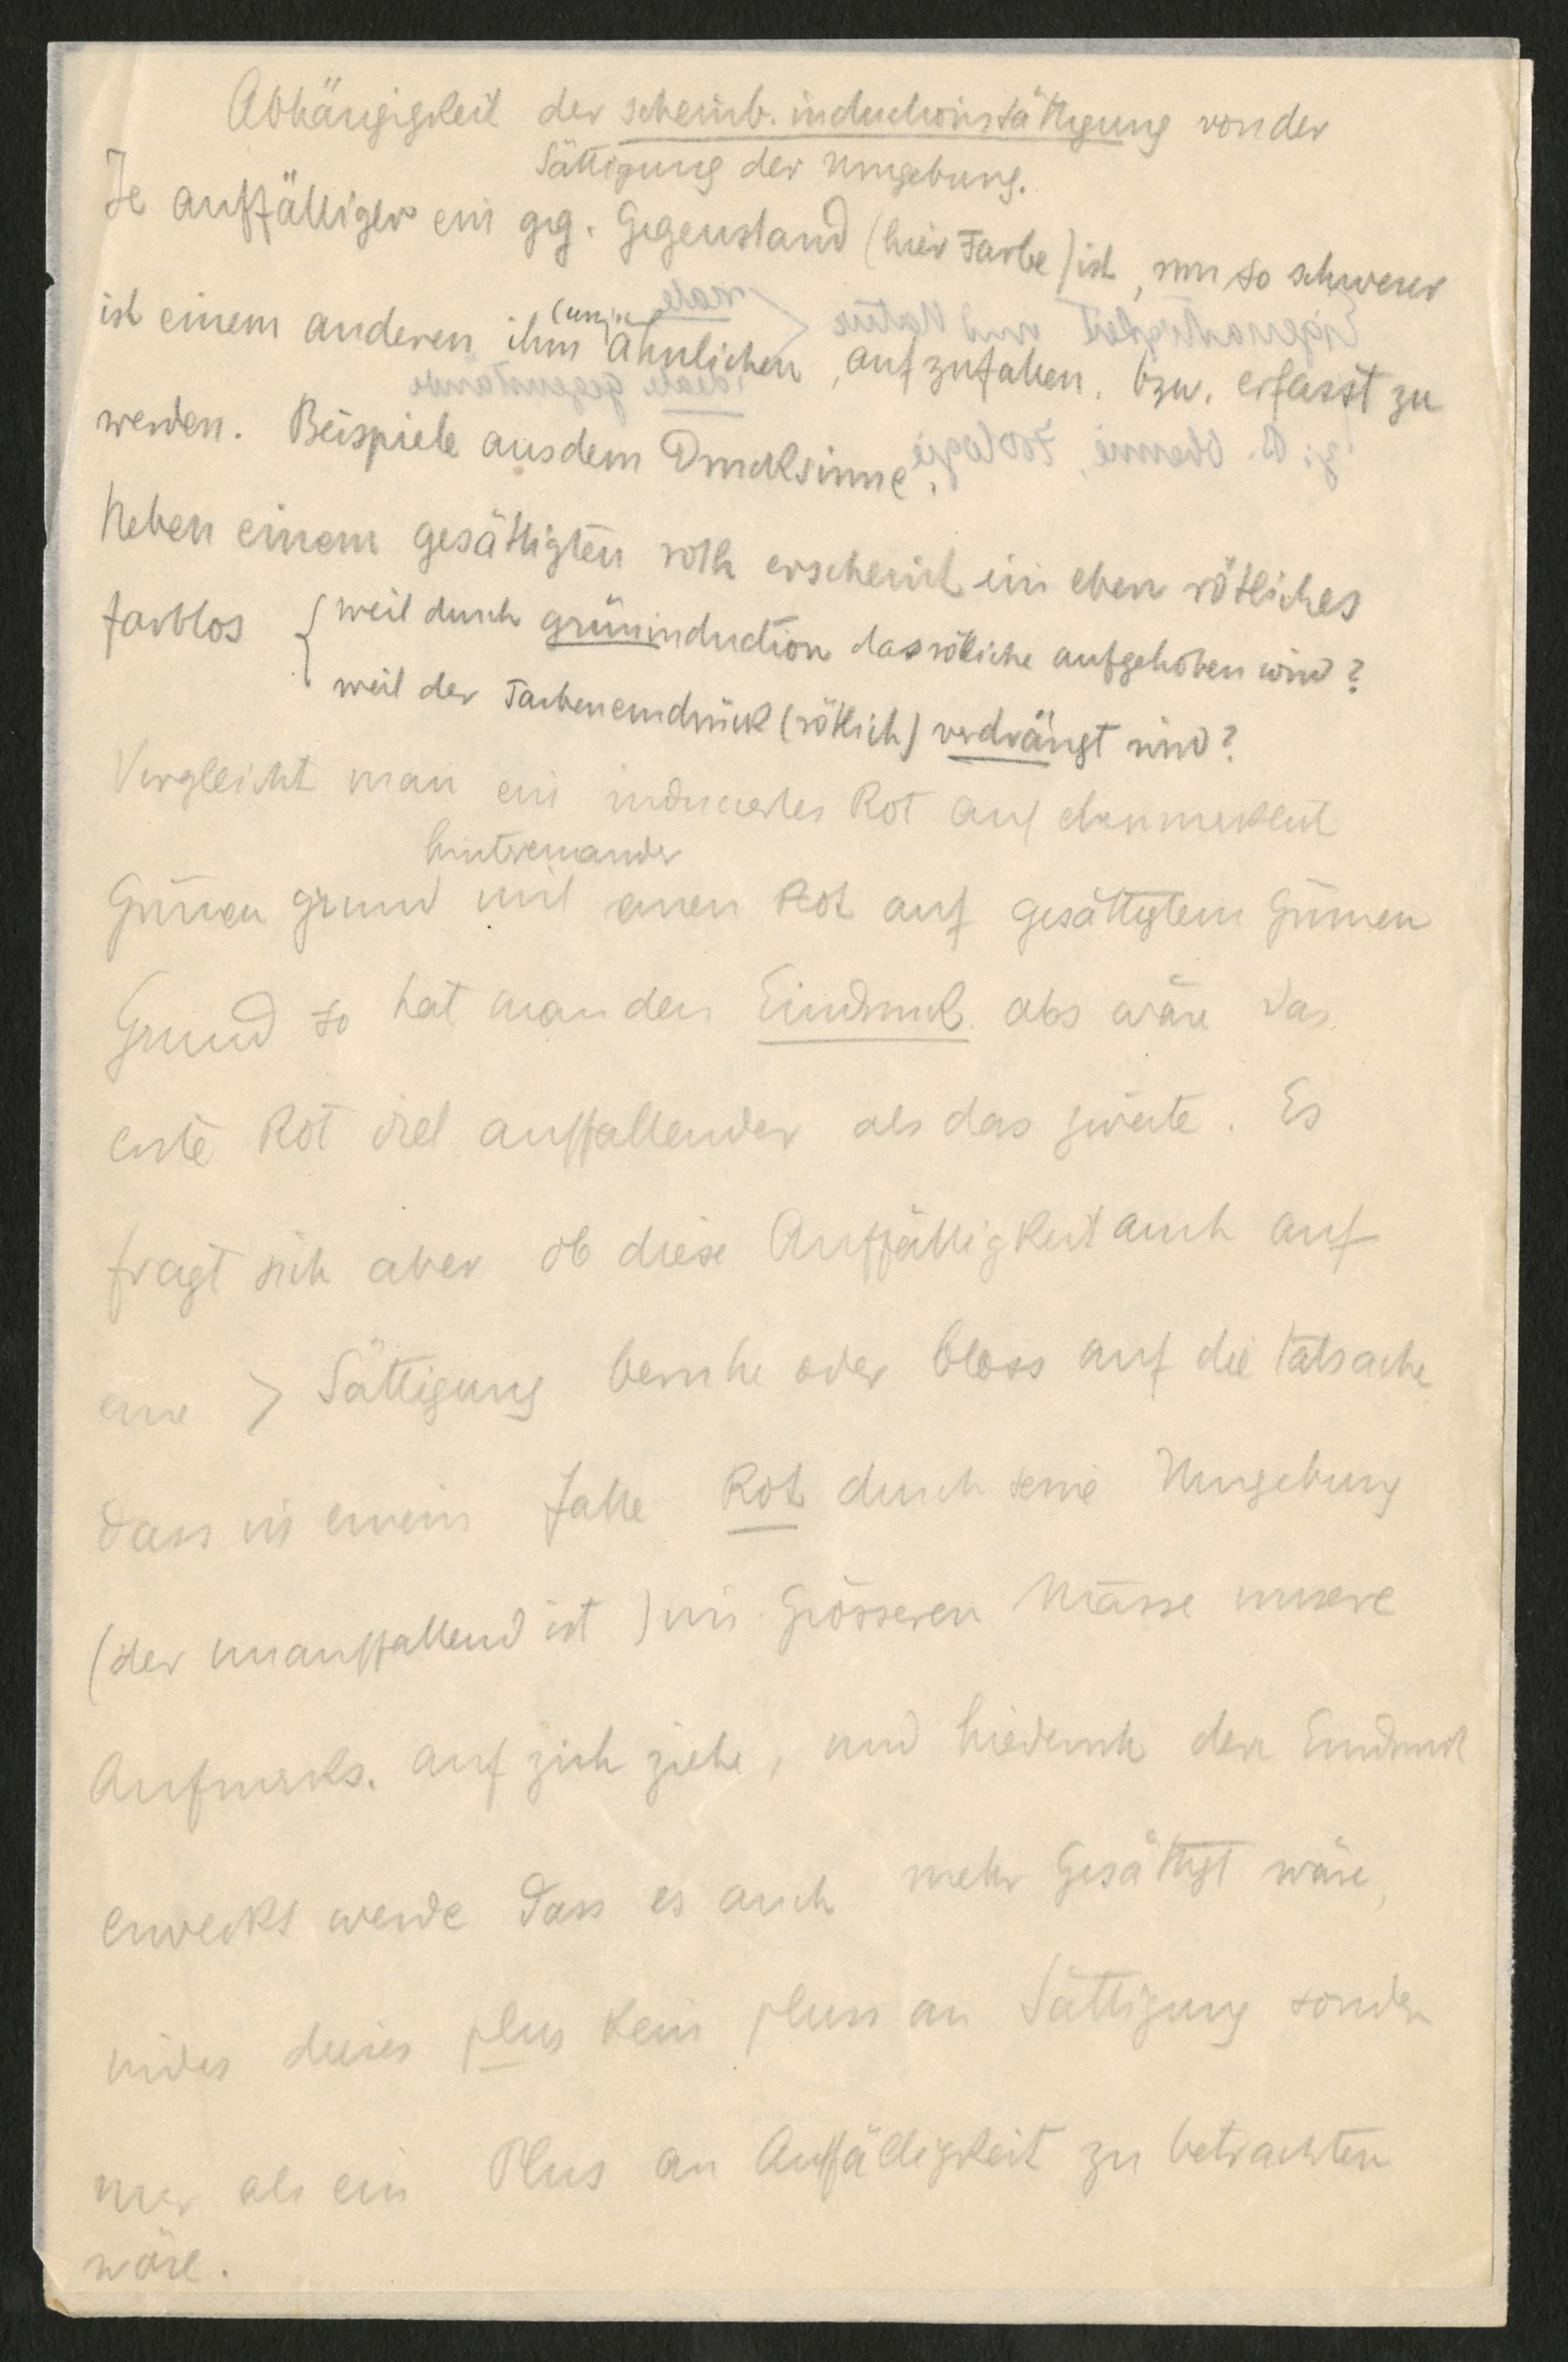 Abhängigkeit der scheinb. inductionssättigung von der
Sättigung der Umgebung.
Je auffälliger ein geg. Gegenstand (hier Farbe) ist, um so schwerer
ist einem anderen ihm ähnlichen, aufzufallen, bzw. erfasst zu
werden. Beispiele aus dem Drucksinne.
Neben einem gesättigten roth erscheint ein eben rötliches
farblos { weil durch grüninduction das rötliche aufgehoben wird?
weil der Farbeneindruck (rötlich) verdrängt wird?
Vergleicht man ein induciertes Rot auf ebenmerklich
hintereinander
Grünen grund mit einen Rot auf gesättigtem Grünen
Grund so hat man den Eindruck als wäre das
erste Rot viel auffallender als das zweite. Es
fragt sich aber ob diese Auffälligkeit auch auf
eine > Sättigung beruhe oder bloss auf die Tatsache
dass in einem Falle Rot durch seine Umgebung
(der unauffallend ist) im Grösseren Masse unsere
Aufmerks. auf zich ziehe, und hiedurch der Eindruck
erweckt werde dass es auch mehr Gesättigt wäre,
indes dieses plus kein pluss an Sättigung sondern
nur als ein Plus an Auffälligkeit zu betrachten
wäre.